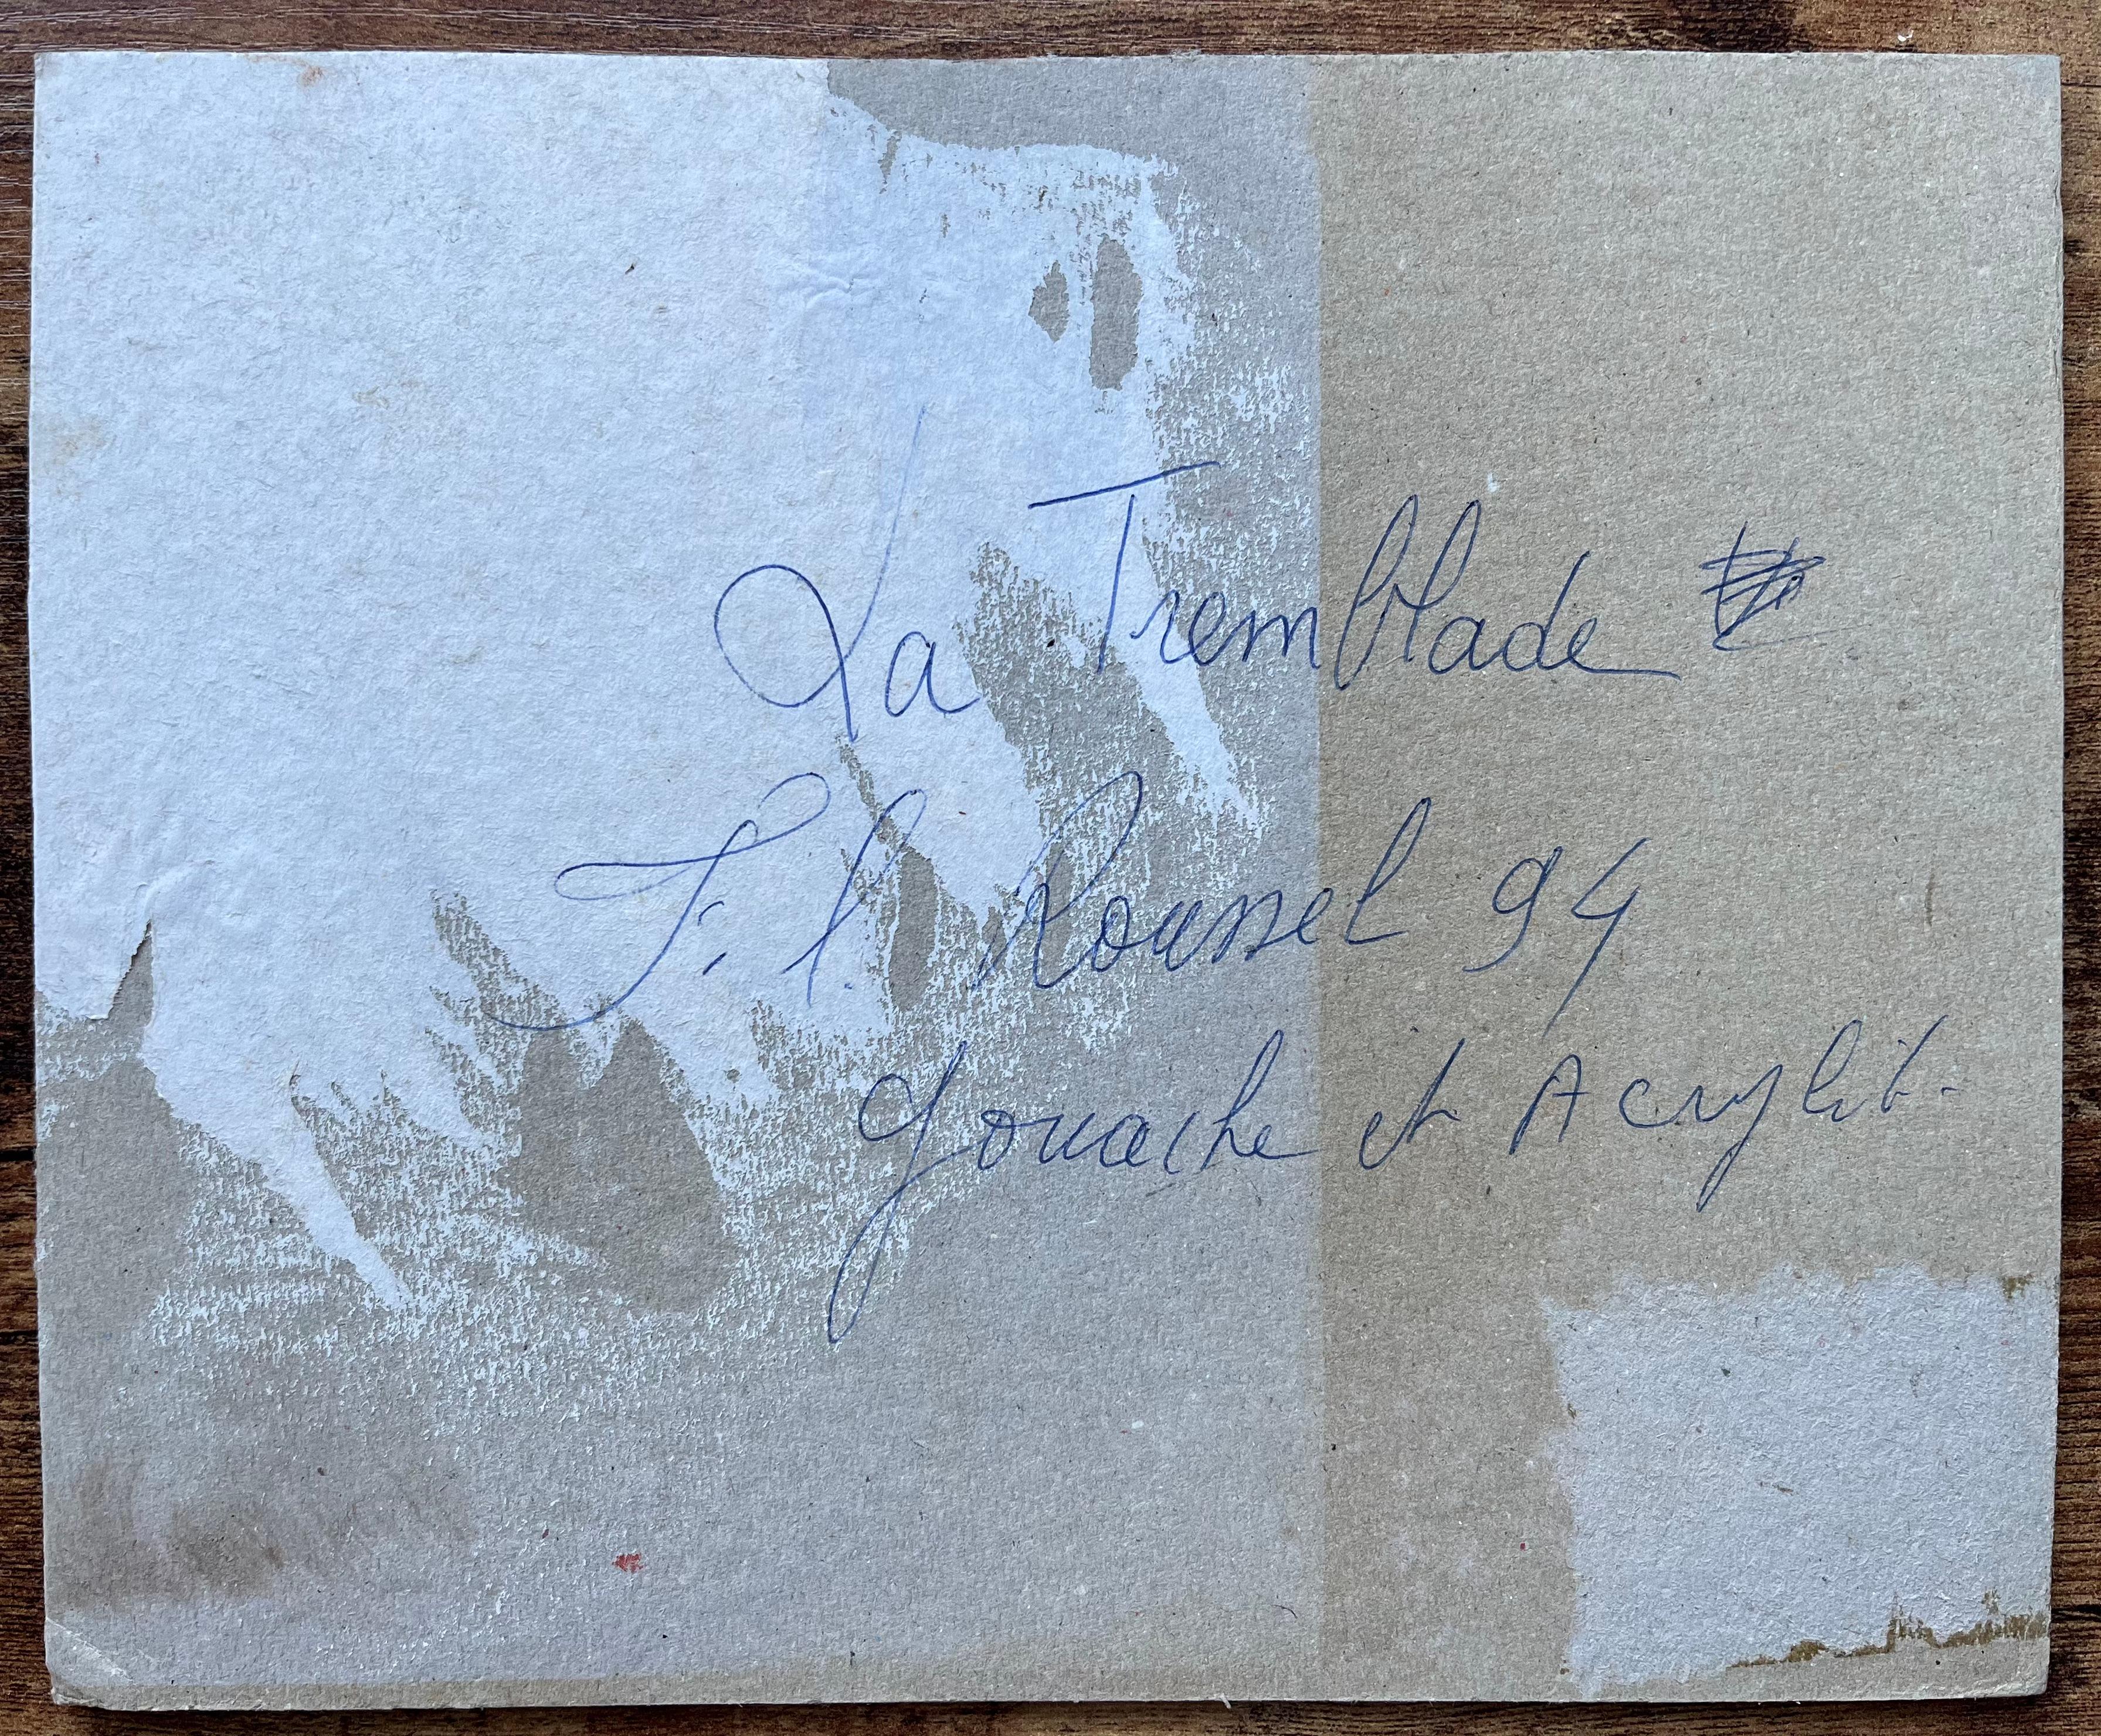 La Tremblade
F. P. Roussel 94
Gouache et Acrylik.